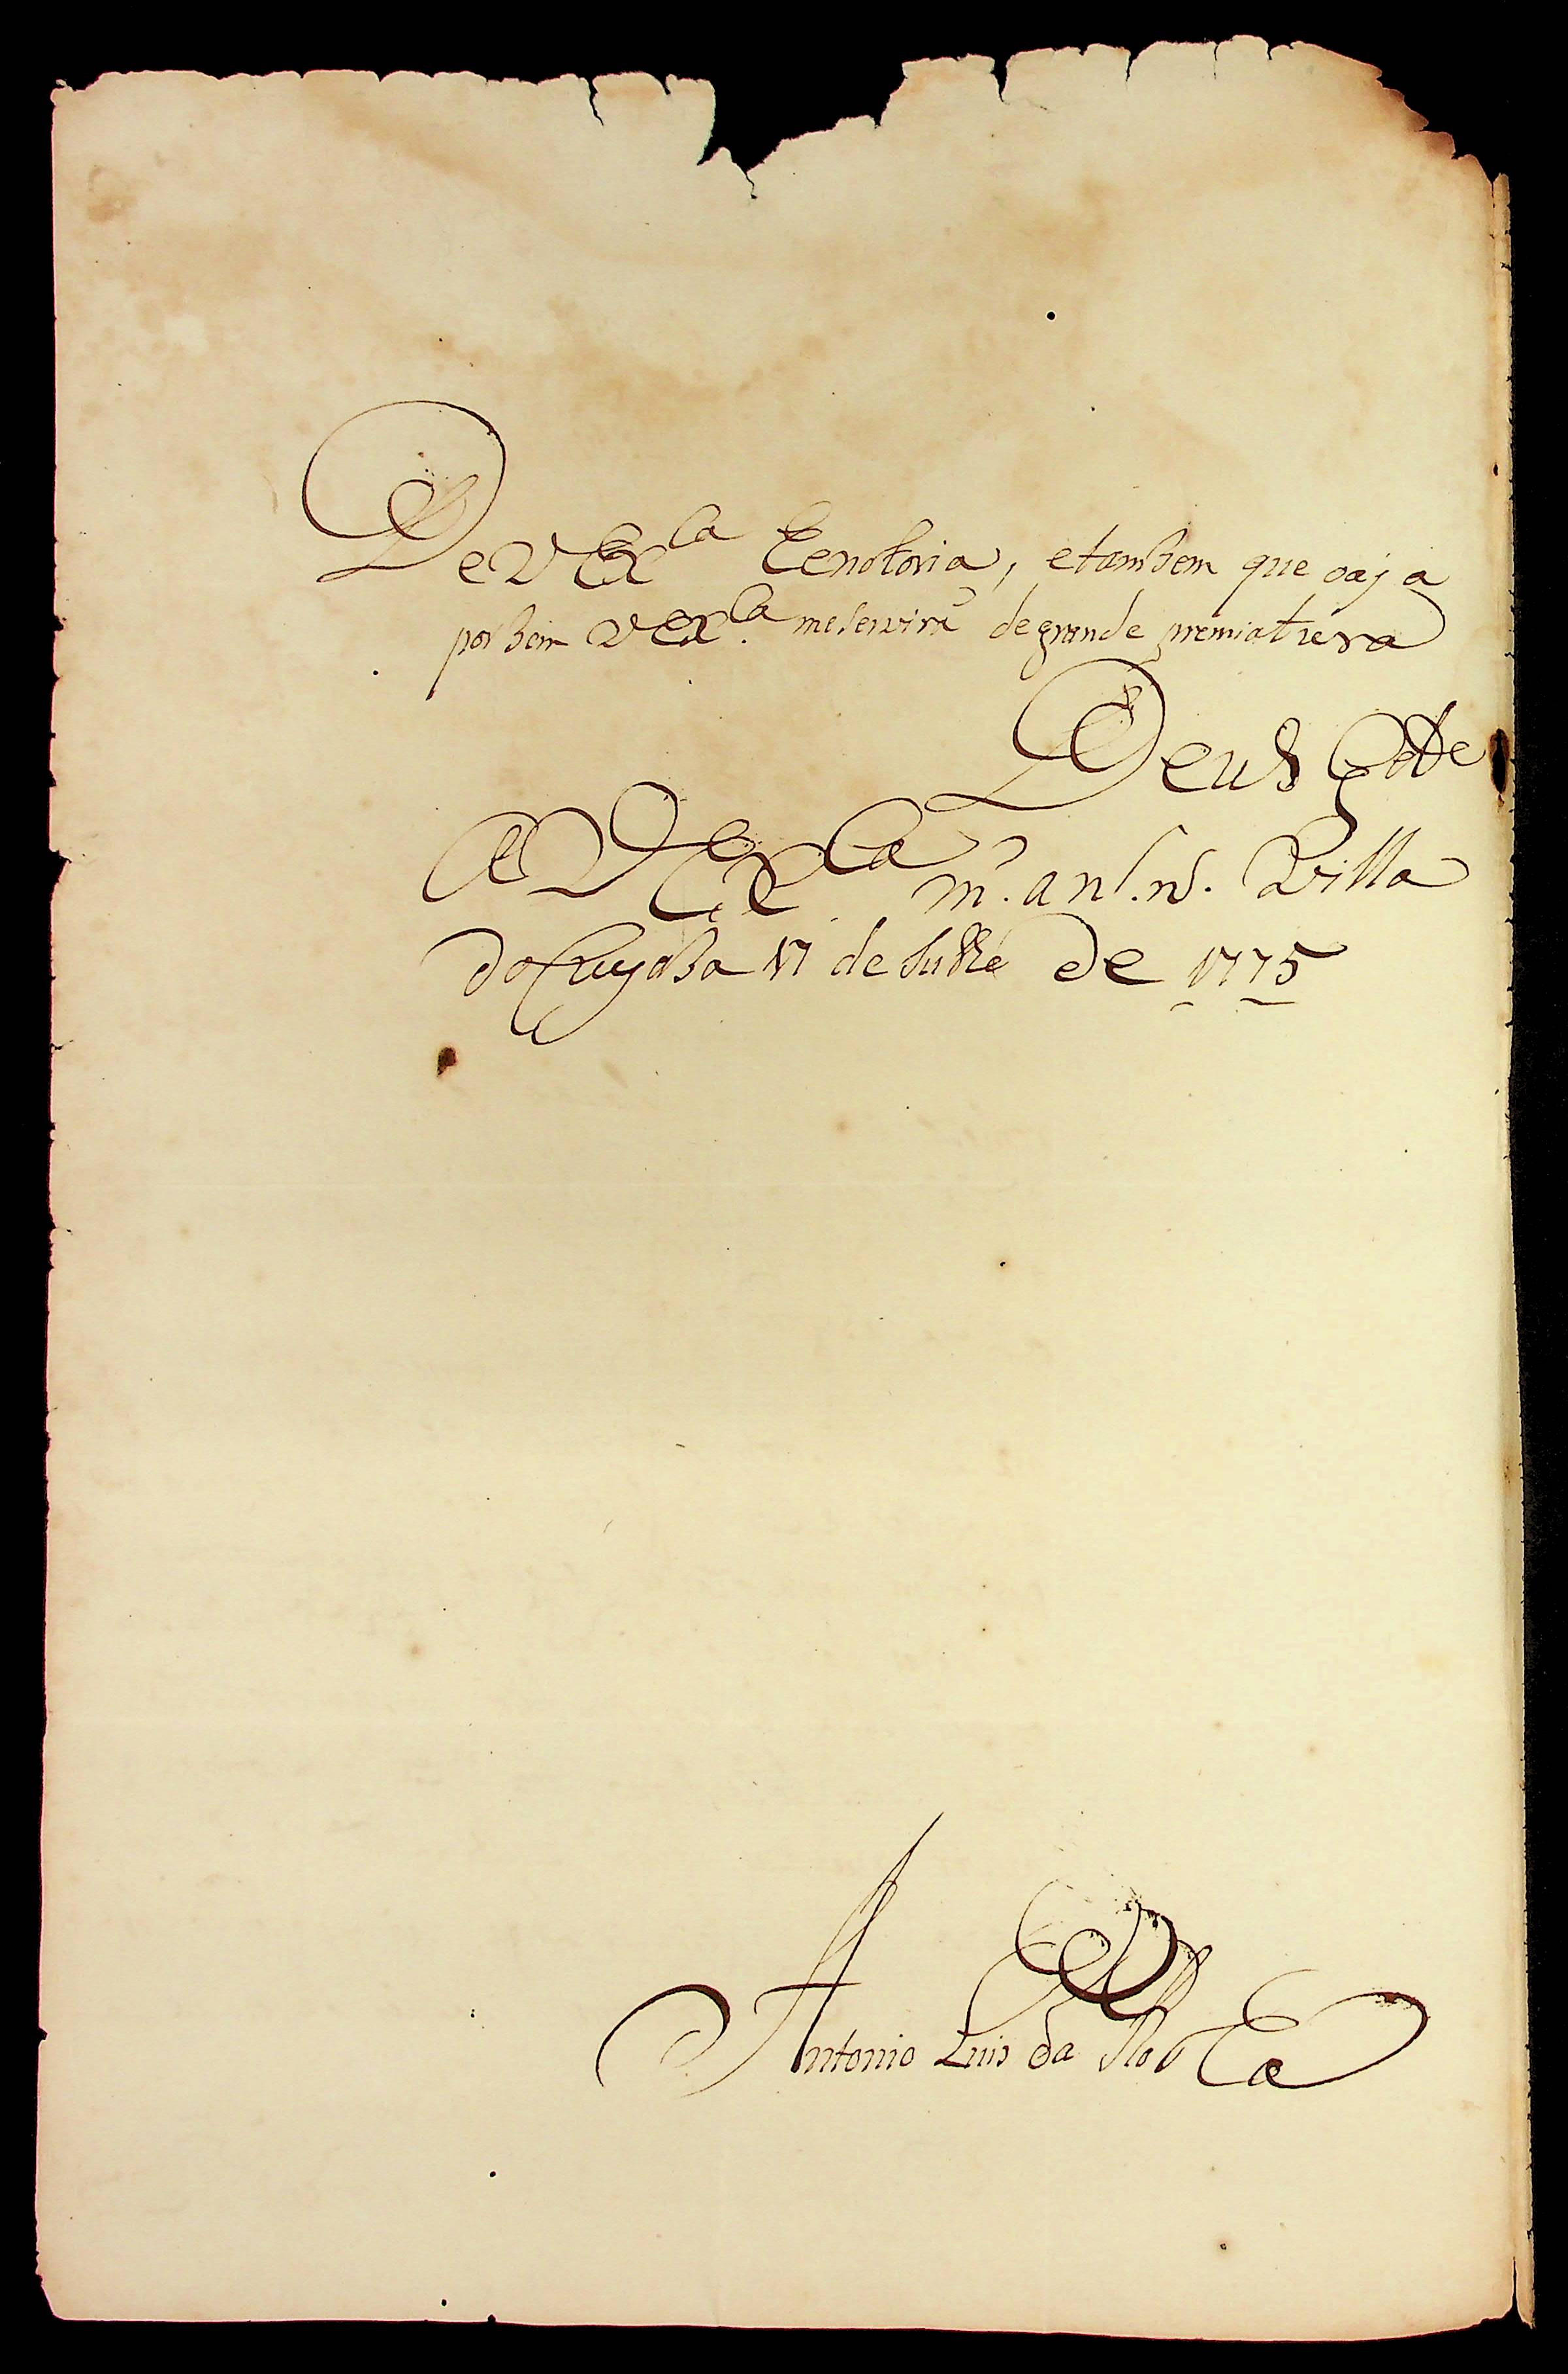 De V Ex.ca he notoria, etambem que oaja
por bem V Ex.ca meservirá degrande premiatura
Deus G.de
A V Ex.ca m.s an.s n.s. Villa
do Cuyaba 17 de de 1775
Antonio Luis da Rocha